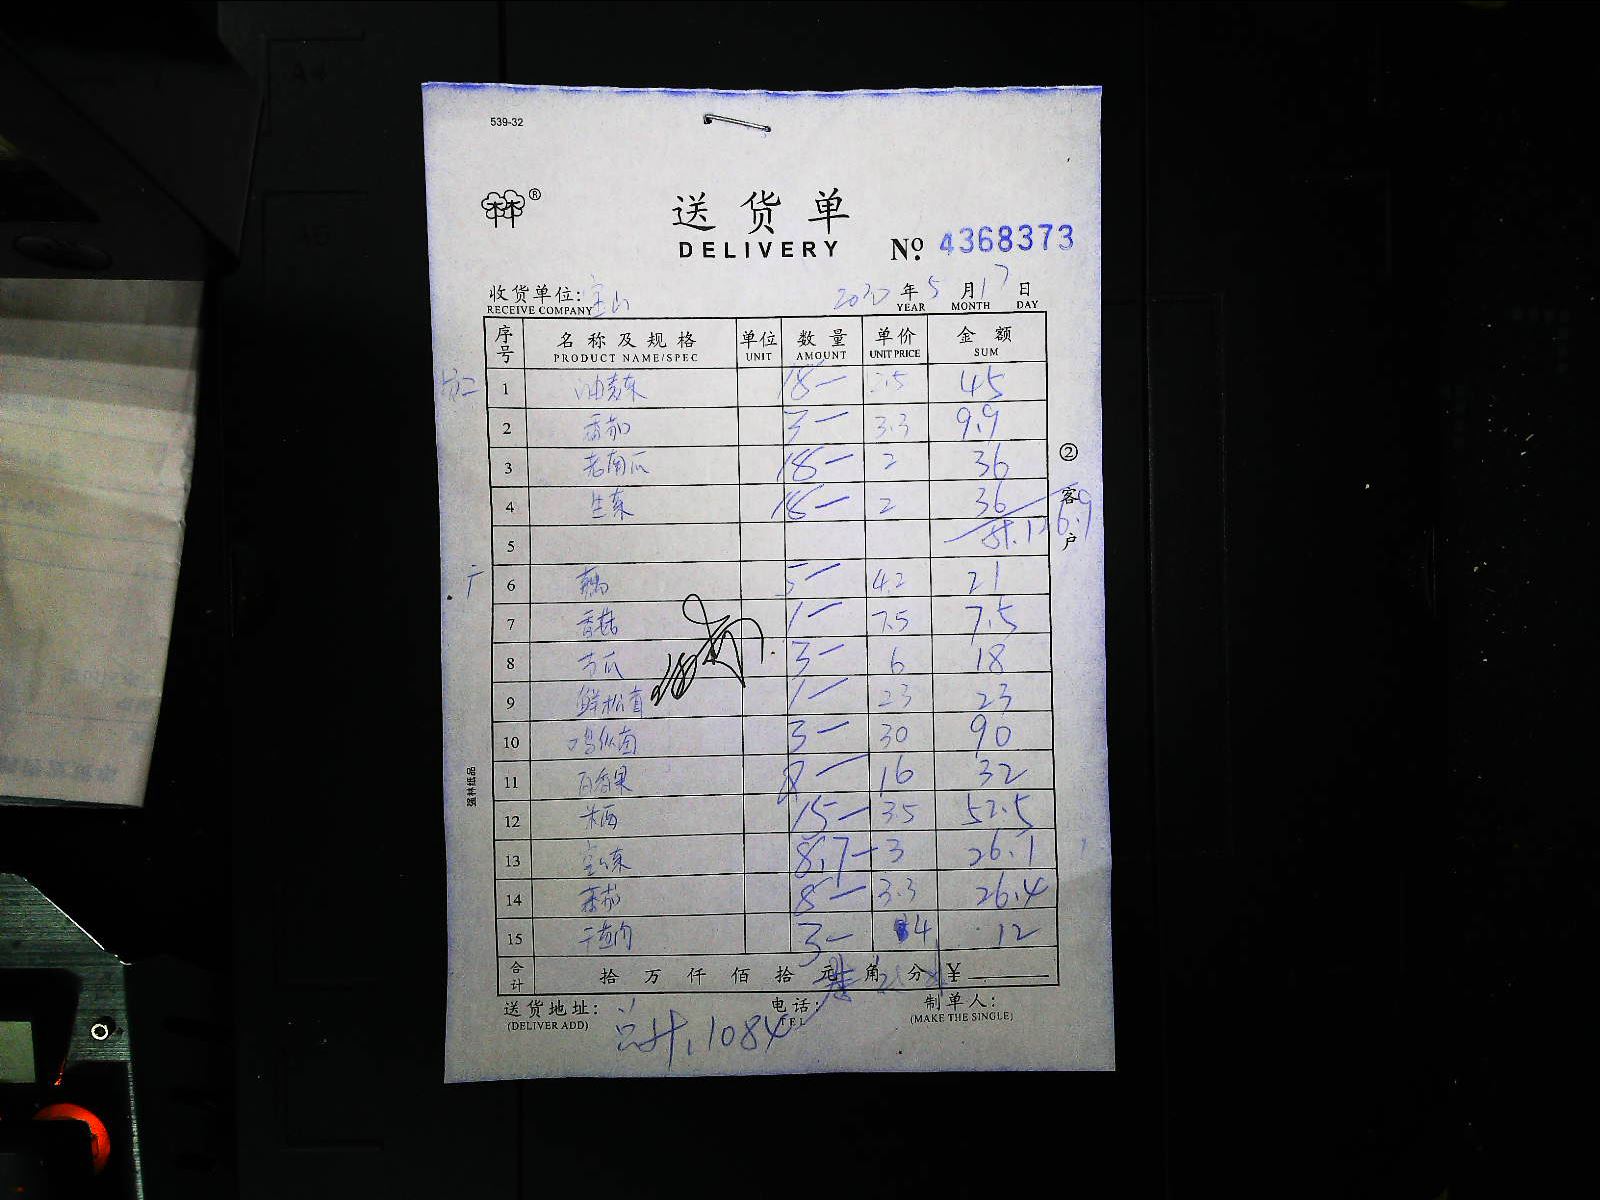 539-32
® 送货单
DELIVERY № 4368373
收货单位: 宝山 2020 年 5 月 17 日
RECEIVE COMPANY YEAR MONTH DAY
序号 名称及规格 单位 数量 单价 金额
PRODUCT NAME/SPEC UNIT AMOUNT UNIT PRICE SUM
1 油麦菜 18 2.5 45
2 番茄 3 3.3 9.9
3 老南瓜 18 2 36
4 生菜 18 2 36
5 计.126.9
6 藕 5 4.2 21
7 香菇 1 7.5 7.5
8 方瓜 3 6 18
9 鲜松茸 1 23 23
10 鸡枞菌 3 30 90
11 百香果 2 16 32
12 米西 15 3.5 52.5
13 空心菜 8.7 3 26.1
14 茶茄 8 3.3 26.4
15 3 4 12
合计 拾 万 仟 佰 拾 元 角 分 ¥
送货地址: 电话: 制单人:
(DELIVER ADD) TEL (MAKE THE SINGLE)
总计.1084
② 客户
强林纸品